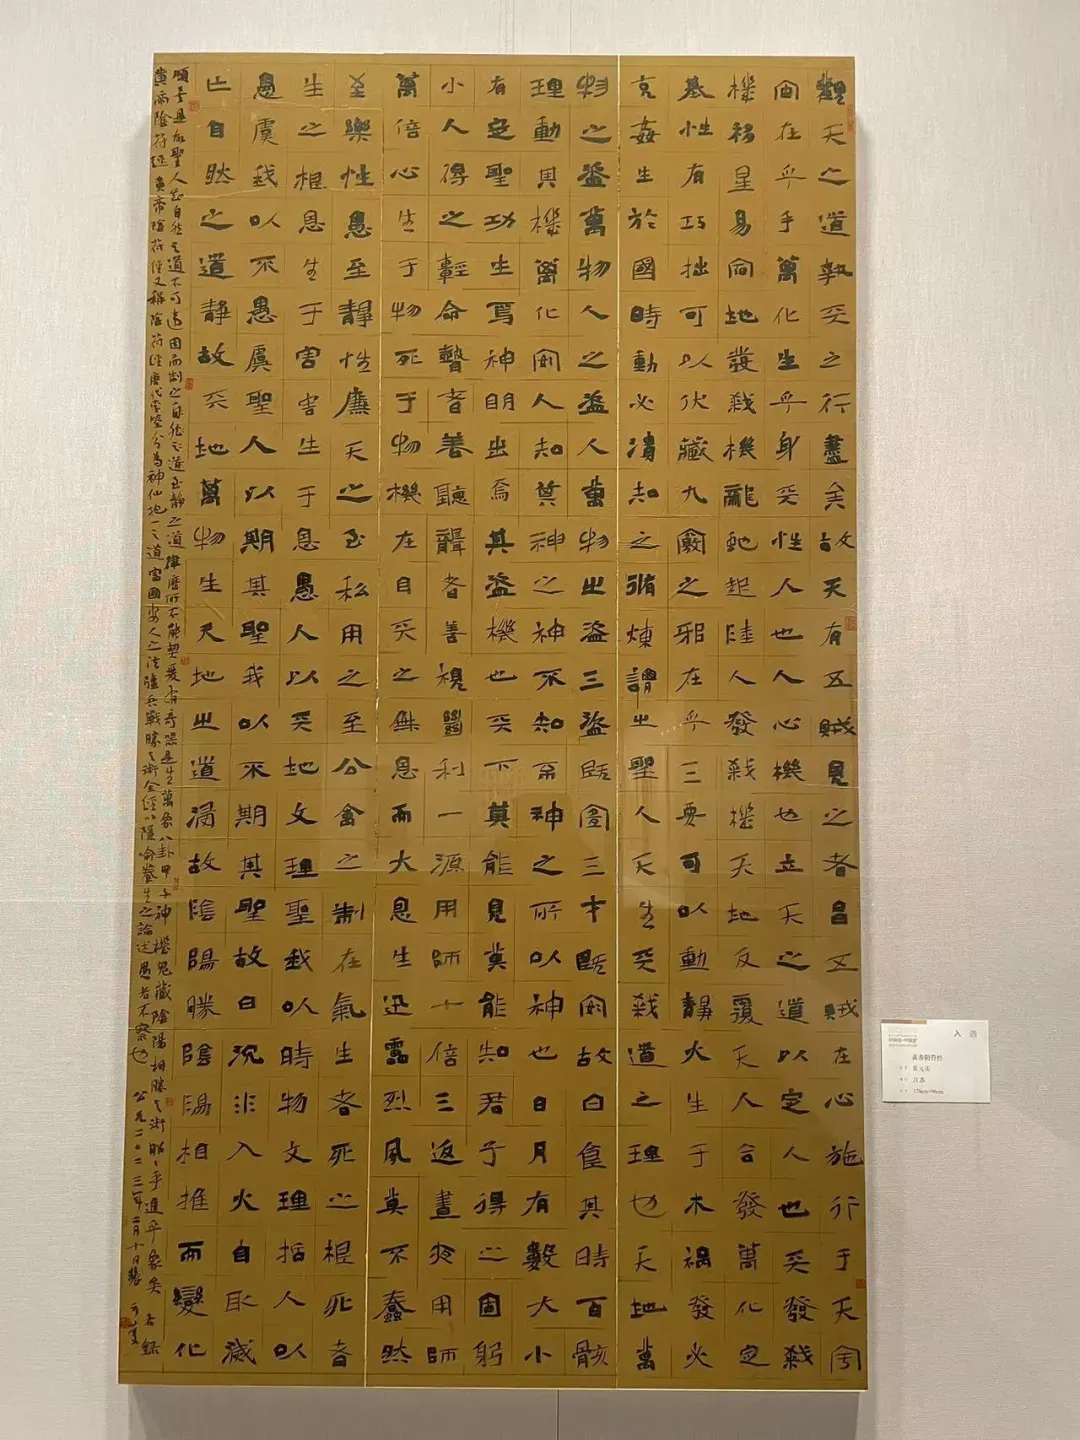 觀天之道執天之行盡矣故天有五賊見之者昌五賊在心施行于天宇
宙在乎手萬化生乎身天性人也人心機也立天之道以定人也天發殺
機移星易宿地發殺機龍蛇起陸人發殺機天地反覆天人合發萬化定
基性有巧拙可以伏藏九竅之邪在乎三要可以動靜火生于木禍發必
克姦生於國時動必潰知之脩煉謂之聖人天生天殺道之理也天地萬
物之盜萬物人之盜人萬物之盜三盜既宜三才既安故曰食其時百骸
理動其機萬化安人知其神之神不知不神之所以神也日月有數大小
有定聖功生焉神明出焉其盜機也天下莫能見莫能知君子得之固躬
小人得之輕命瞽者善聽聾者善視絕利一源用師十倍三返晝夜用師
萬倍心生于物死于物機在目天之無恩而大恩生迅雷烈風莫不蠢然
至樂性愚至靜性廉天之至私用之至公禽之制在氣生者死之根死者
生之根恩生于害害生于恩愚人以天地文理聖我以時物文理哲人以
愚虞我以不愚虞聖人以期其聖我以不期其聖故曰沉水入火自取滅
亡自然之道靜故天地萬物生天地之道浸故陰陽勝陰陽相推而變化
順矣是故聖人知自然之道不可違因而制之自然之道至靜之道律曆所不能契爰有奇器是生萬象八卦甲子神機鬼藏陰陽相勝之術昭昭乎進乎象矣 右錄
黃帝陰符經 黃帝陰符經又稱陰符經唐代李筌分為神仙抱一之道富國安人之法強兵戰勝之術全經以隱喻養生之論述愚者不察也 公元二〇二三年二月十日張元慶
入选
黄帝阴符经
江苏